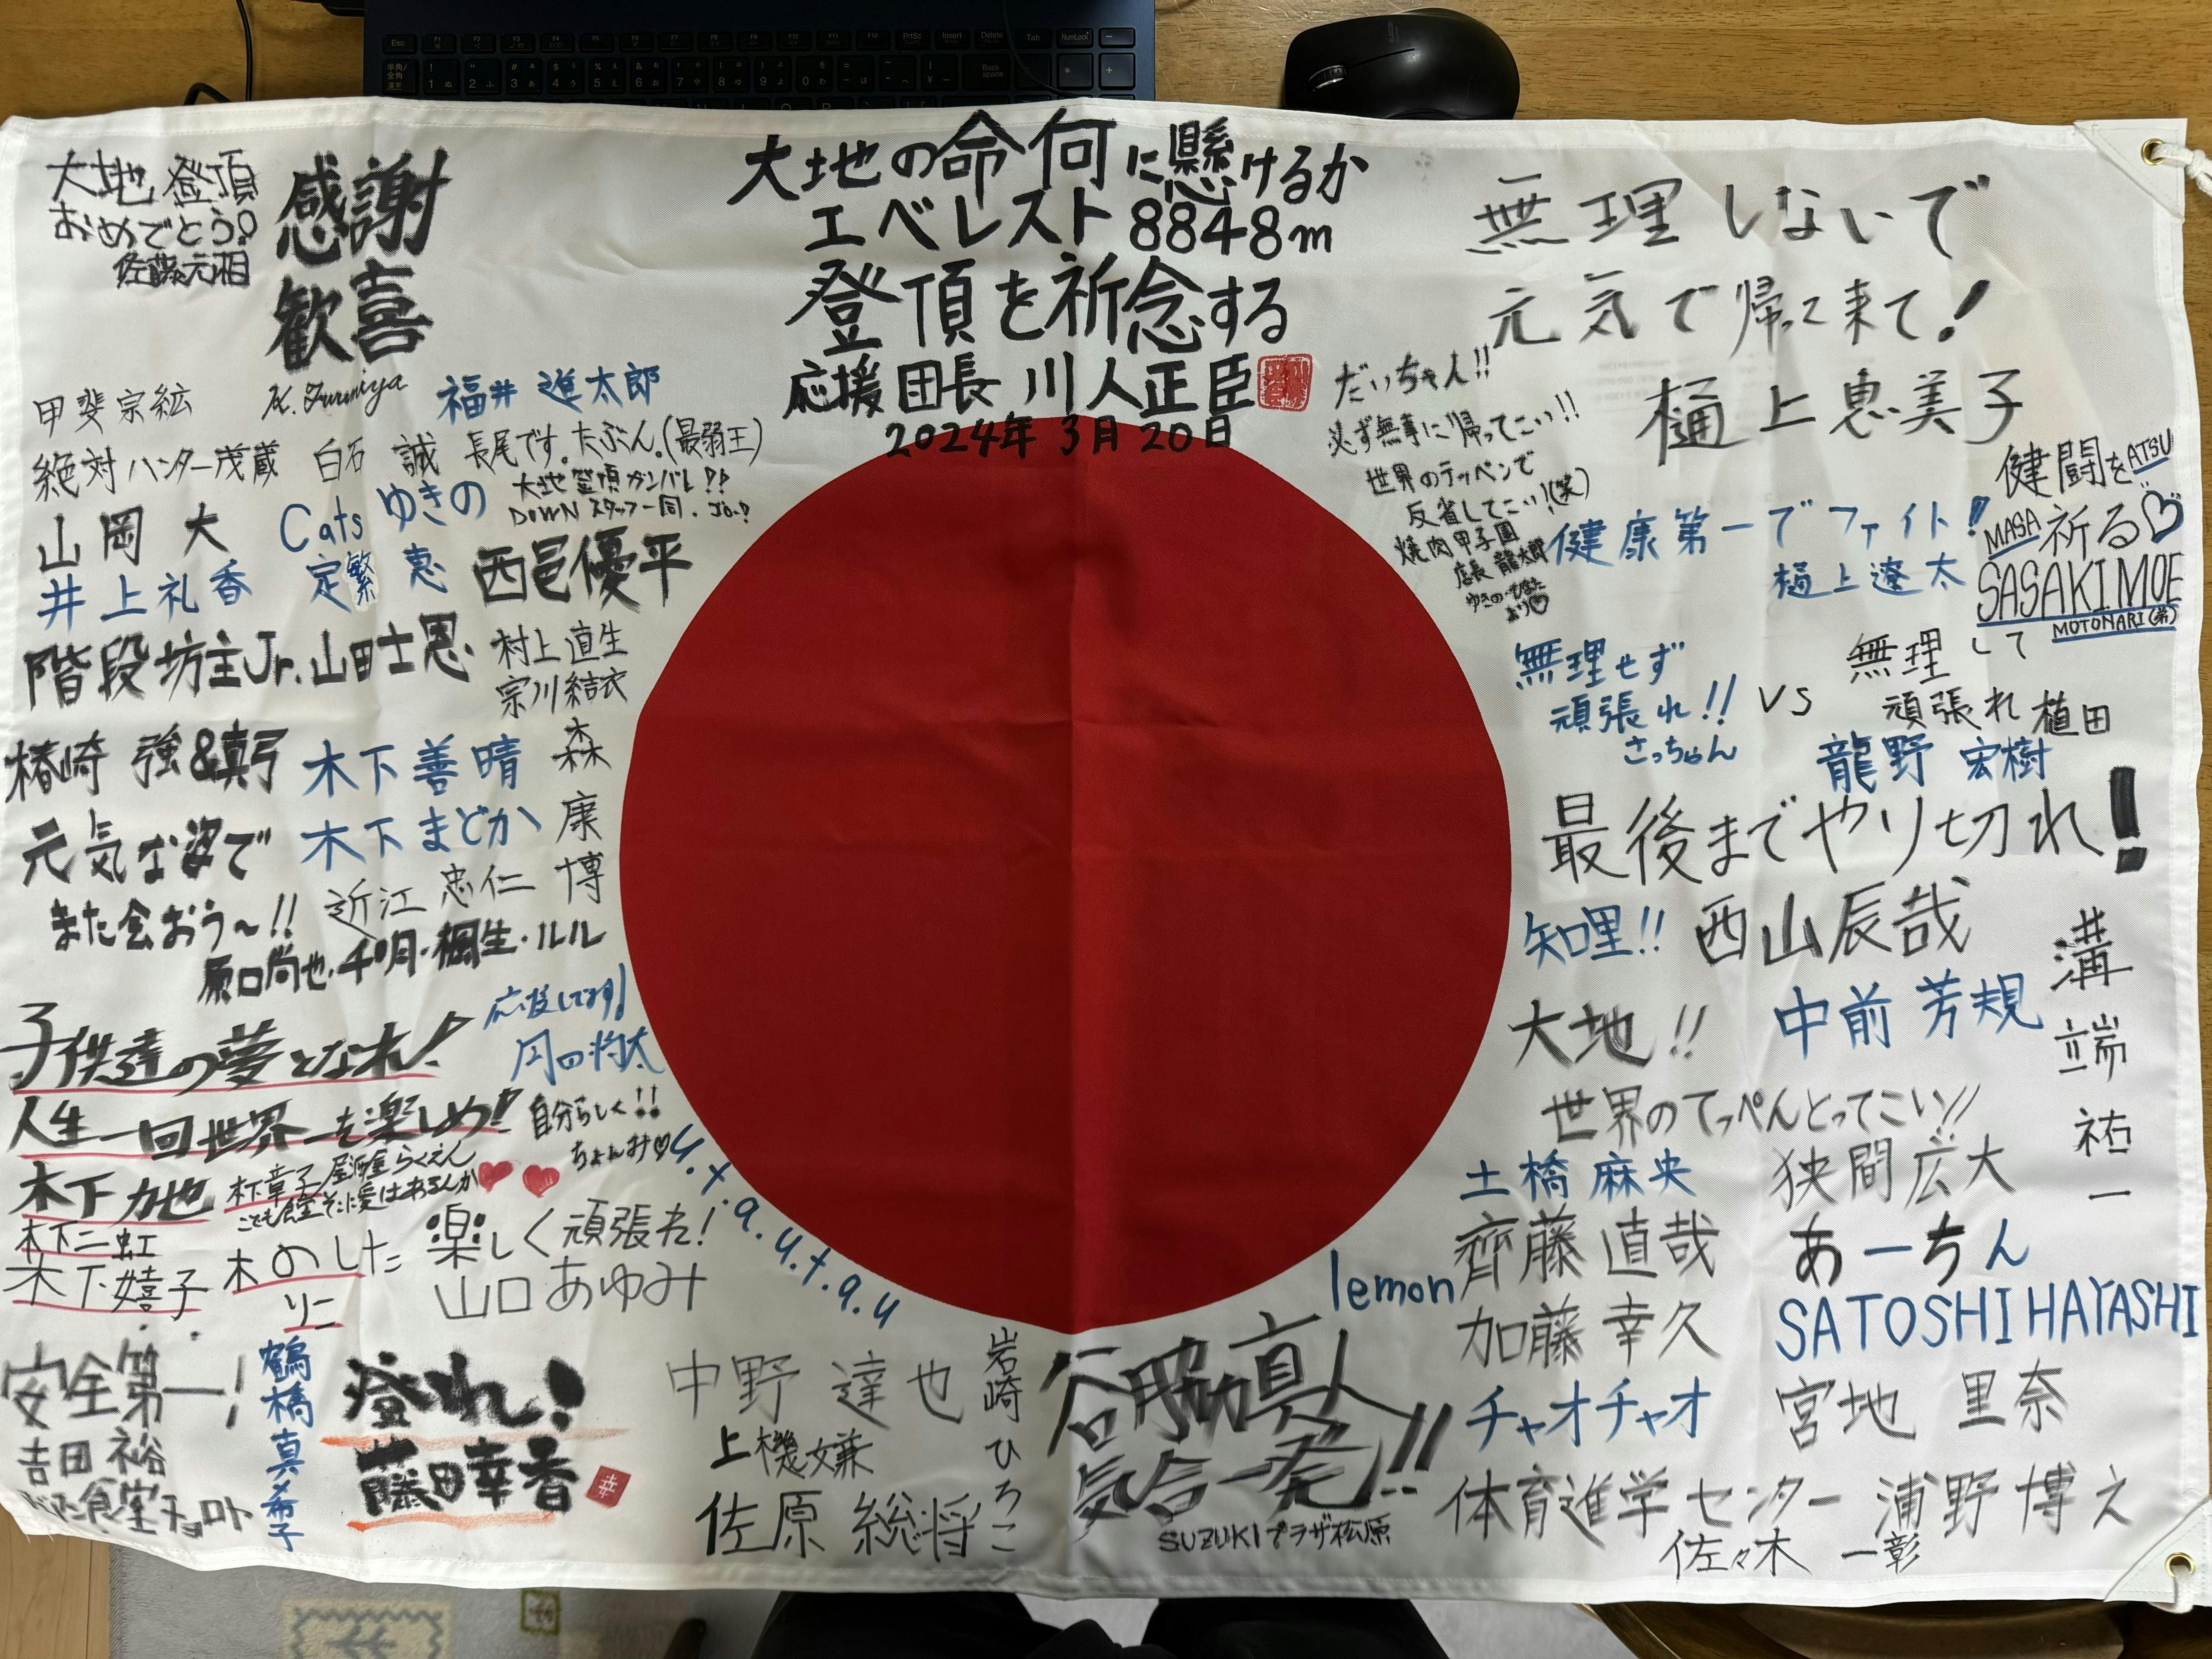 大地の命何に懸けるか
エベレスト8848m
登頂を祈念する
応援団長 川人正臣
2024年3月20日
大地 登頂
おめでとう!
佐藤元相
感謝
歓喜
甲斐宗紘
福井 進太郎
絶対ハンター茂蔵 白石 誠 長尾です。たぶん。(最弱王)
山岡 大 Cats ゆきの
大地 登頂ガンバレ!!
DOWN スタッフ一同.
井上礼香 定繁 恵 西邑優平
階段坊主Jr.山田士恩
村上直生
宗川結衣
椿崎 強&真弓 木下善晴
木下まどか
森 康博
元気な姿で
また会おう〜!!
近江 忠仁
原口尚也・千明・楓生・ルル
子供達の夢となれ!
応援してます!
人生一回世界一を楽しめ!
自分らしく!!
ちょんみ♡
木下力也
木下章子 居酒屋らくえん
こども食堂そこに愛はあるんか
木下二虹
木下嬉子
木のした
りこ
楽しく頑張れ!
山口あゆみ
u.t.a.u.t.a.u
安全第一!
吉田 裕
鶴橋真希子
登れ!
藤田幸香
中野 達也
上機嫌
佐原 総将
岩崎ひろこ
谷脇真人
気合一発!!
SUZUKIプラザ松原
無理しないで
元気で帰って来て!
樋上恵美子
だいちゃん!!
必ず無事に帰ってこい!!
世界のテッペンで
反省してこい!(笑)
焼肉甲子園
店長 龍太郎
ゆきの・ひなた
より♡
健闘を ATSU
MASA 祈る♡
SASAKI MOE
MOTONARI(弟)
健康第一でファイト!
樋上遼太
無理せず
頑張れ!!
さっちゃん
VS
無理して
頑張れ 植田
龍野 宏樹
最後までやり切れ!
知里!! 西山辰哉
大地!! 中前 芳規
溝端祐一
世界のてっぺんとってこい!!
土橋麻央 狭間広大
齊藤直哉 あーちん
lemon
加藤幸久 SATOSHI HAYASHI
チャオチャオ 宮地 里奈
体育進学センター 浦野博之
佐々木 一彰